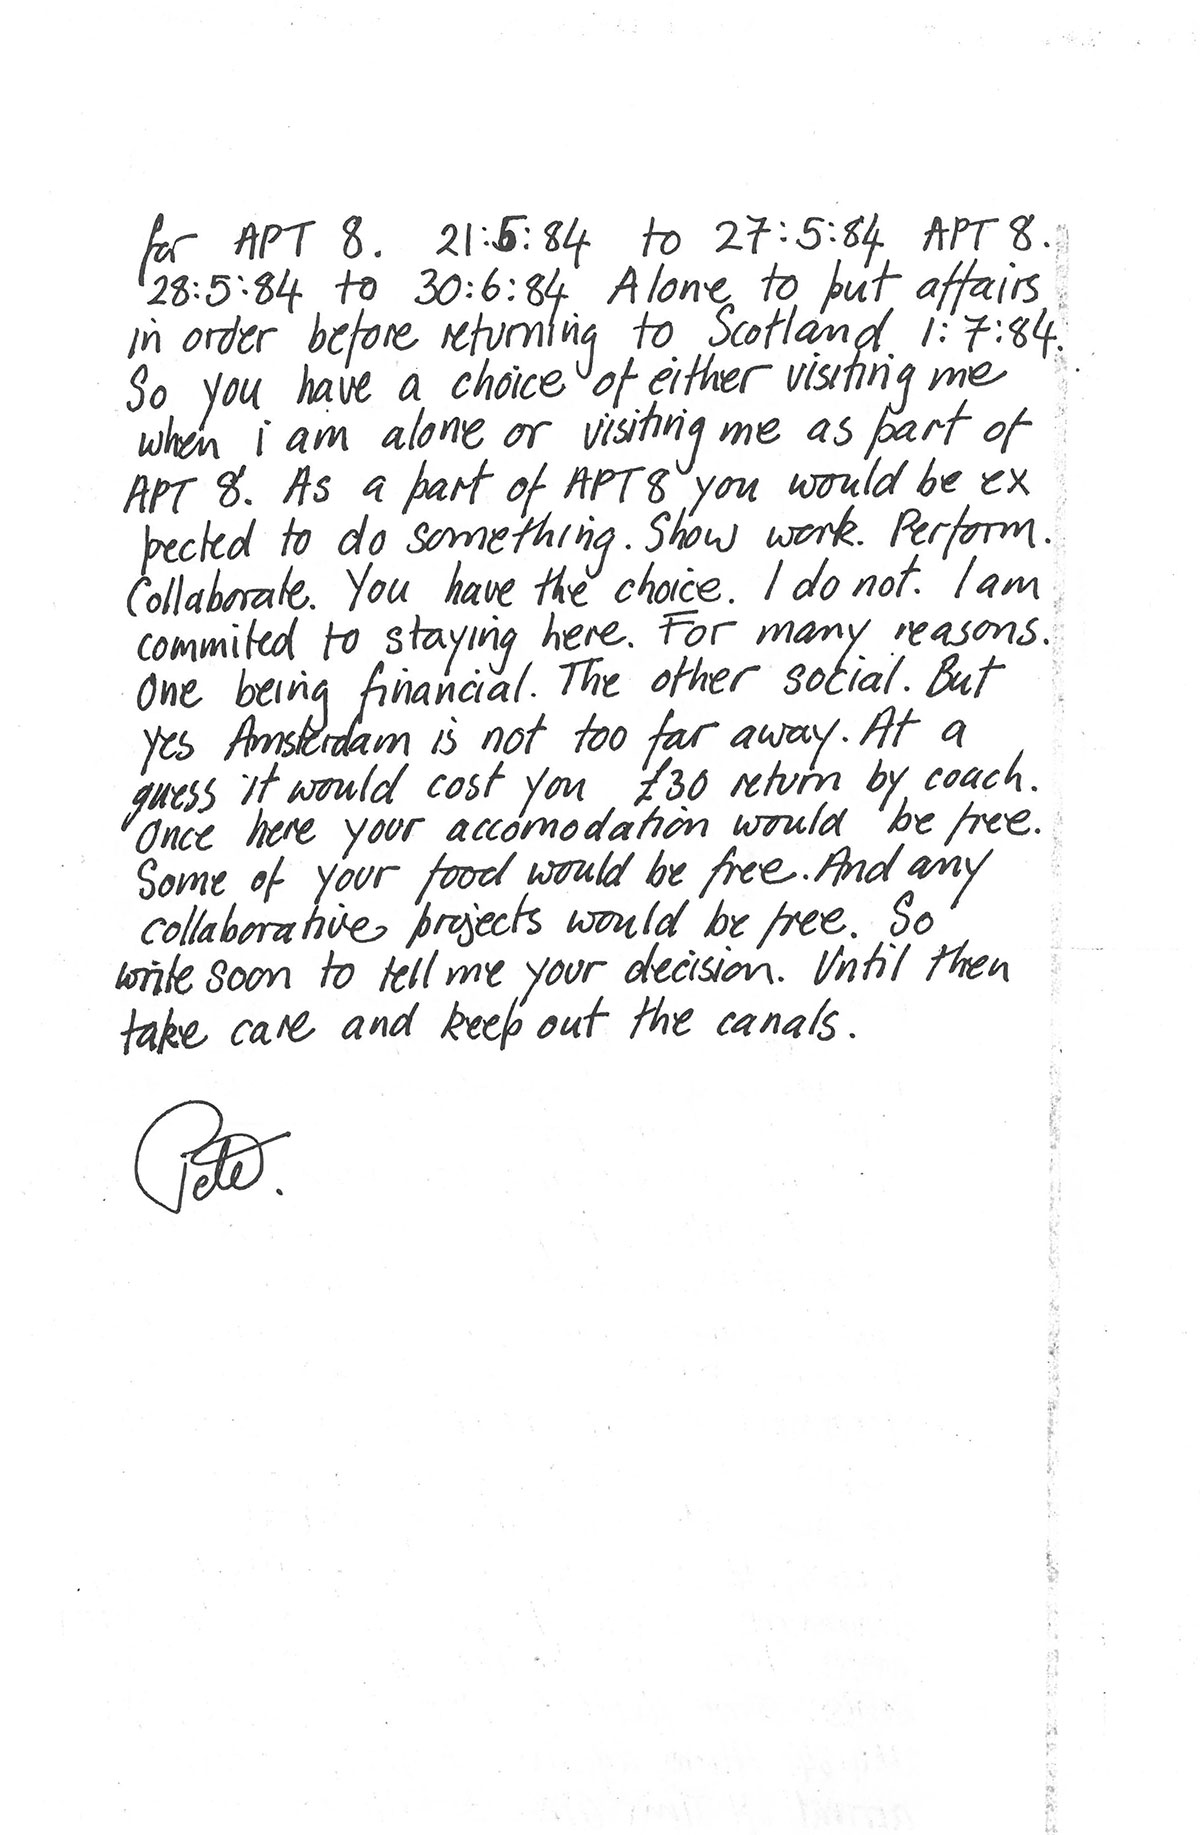 for APT 8. 21:5:84 to 27:5:84 APT 8.
28:5:84 to 30:6:84 Alone to put affairs
in order before returning to Scotland 1:7:84.
So you have a choice of either visiting me
when i am alone or visiting me as part of
APT 8. As a part of APT 8 you would be ex
pected to do something. Show work. Perform.
Collaborate. You have the choice. I do not. I am
commited to staying here. For many reasons.
One being financial. The other social. But
yes Amsterdam is not too far away. At a
guess it would cost you £30 return by coach.
Once here your accomodation would be free.
Some of your food would be free. And any
collaborative projects would be free. So
write soon to tell me your decision. Until then
take care and keep out the canals.
Pete.